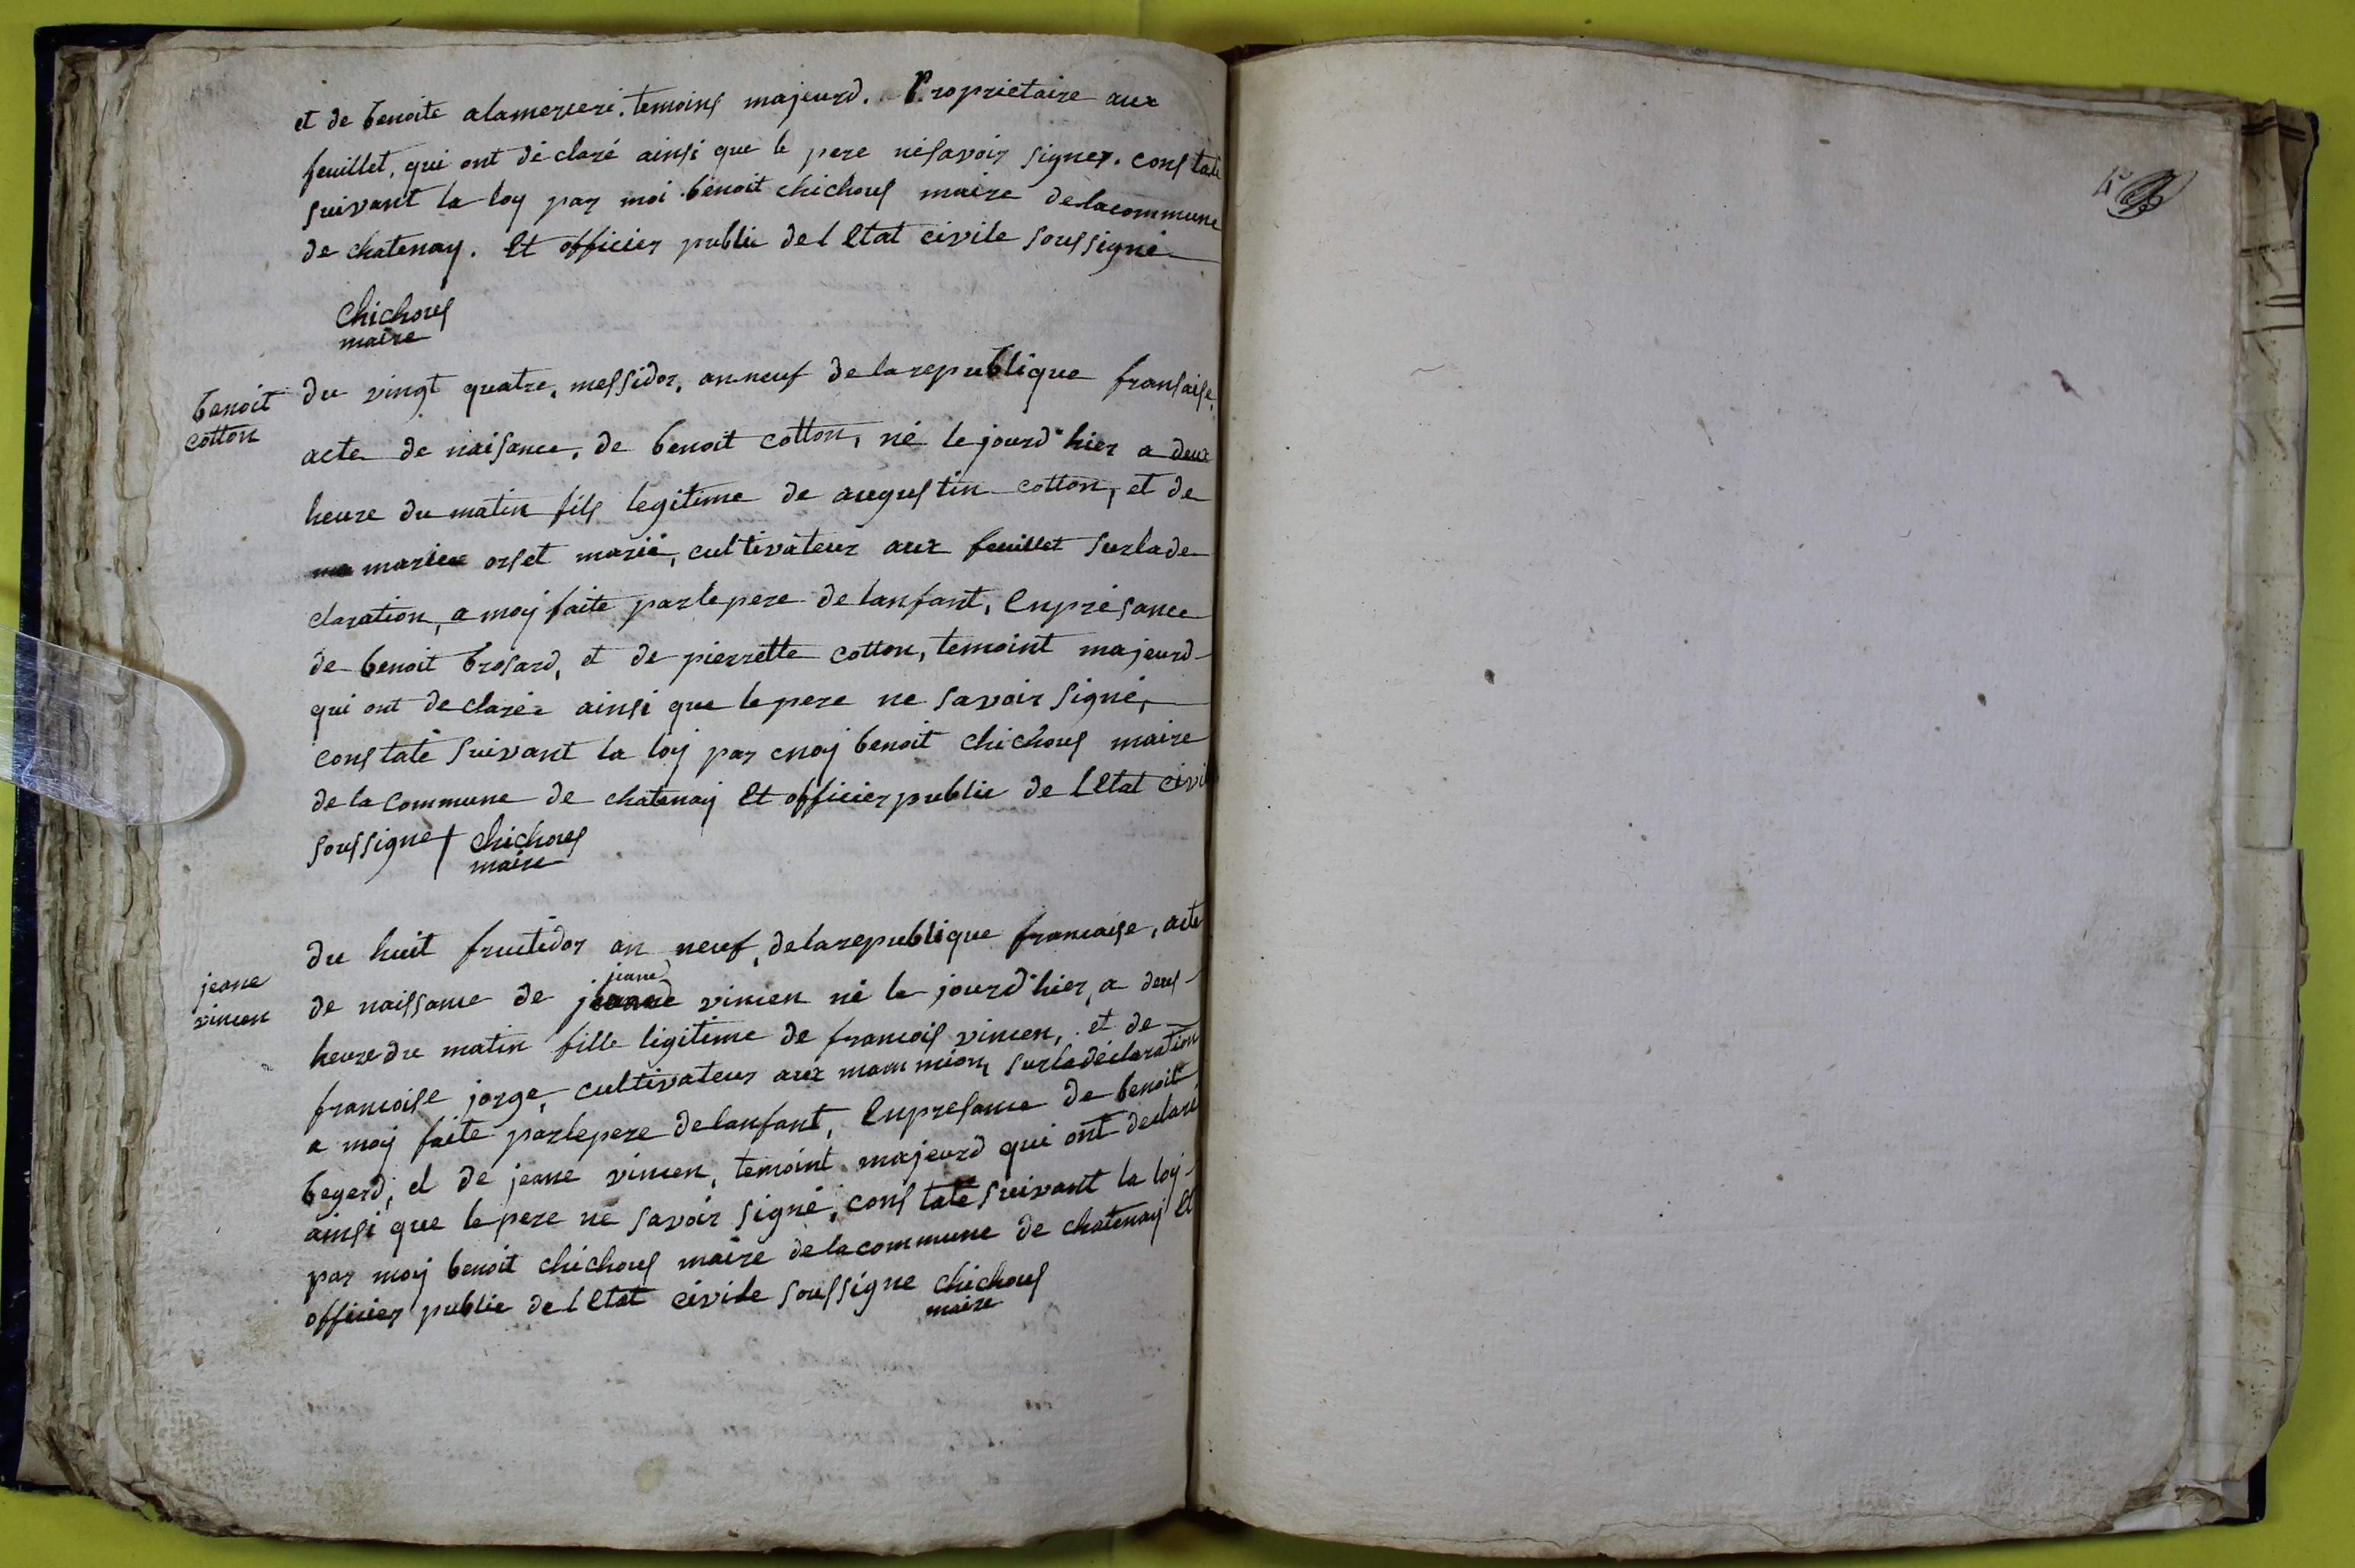 et de benoite alamerceri. temoins majeurd. Propriétaire aux
feuillet, qui ont déclaré ainsi que le pere nésavoir signer. constaté
suivant la loy par moi benoit chichoux maire delacommune
de chatenay. Et officier public del Etat civile soussigné
chichoux
maire
benoit
cotton
du vingt quatre, messidor, an neuf delarepublique fransaise,
acte de naisance, de benoit cotton, né le jourd'hier a deux
heure du matin fils legitime de augustin cotton, et de
mariee orset marié, cultivateur aux feuillet surlade
claration, a moy faite parlepere delanfant, Enprésance
de benoit brosard, et de pierrette cotton, temoint majeurd
qui ont declarée ainsi que lepere ne savoir signé,
constaté suivant la loy par moy benoit chichoux maire
de la commune de chatenay Et officier public de lEtat civil
soussigne chichoux
maire
jeane
vincen
du huit fructidor an neuf, delarepublique francaise, acte
jeane
de naissance de vincen né le jourd'hier, a deux
heuredu matin fille ligitime de francois vincen, et de
francoise jorge, cultivateur aux mammion, surladéclaration
a moy faite parlepere delanfant, Enpresance de benoit
begerd, et de jeane vincen, temoint majeurd qui ont declaré
ainsi que lepere ne savoir signé, constaté suivant la loy
par moy benoit chichoux maire delacommune de chatenay Et
officier public del Etat civile soussigne chichoux
maire